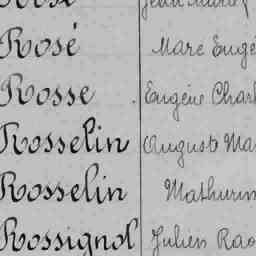 Rosé Marc Eugé
Rosse Eugène Charl
Rosselin Auguste Ma
Rosselin Mathurin
Rossignol Julien Rao